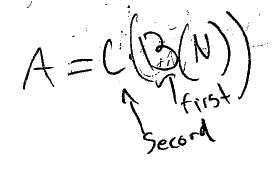 A = C(B(N))
first
Second